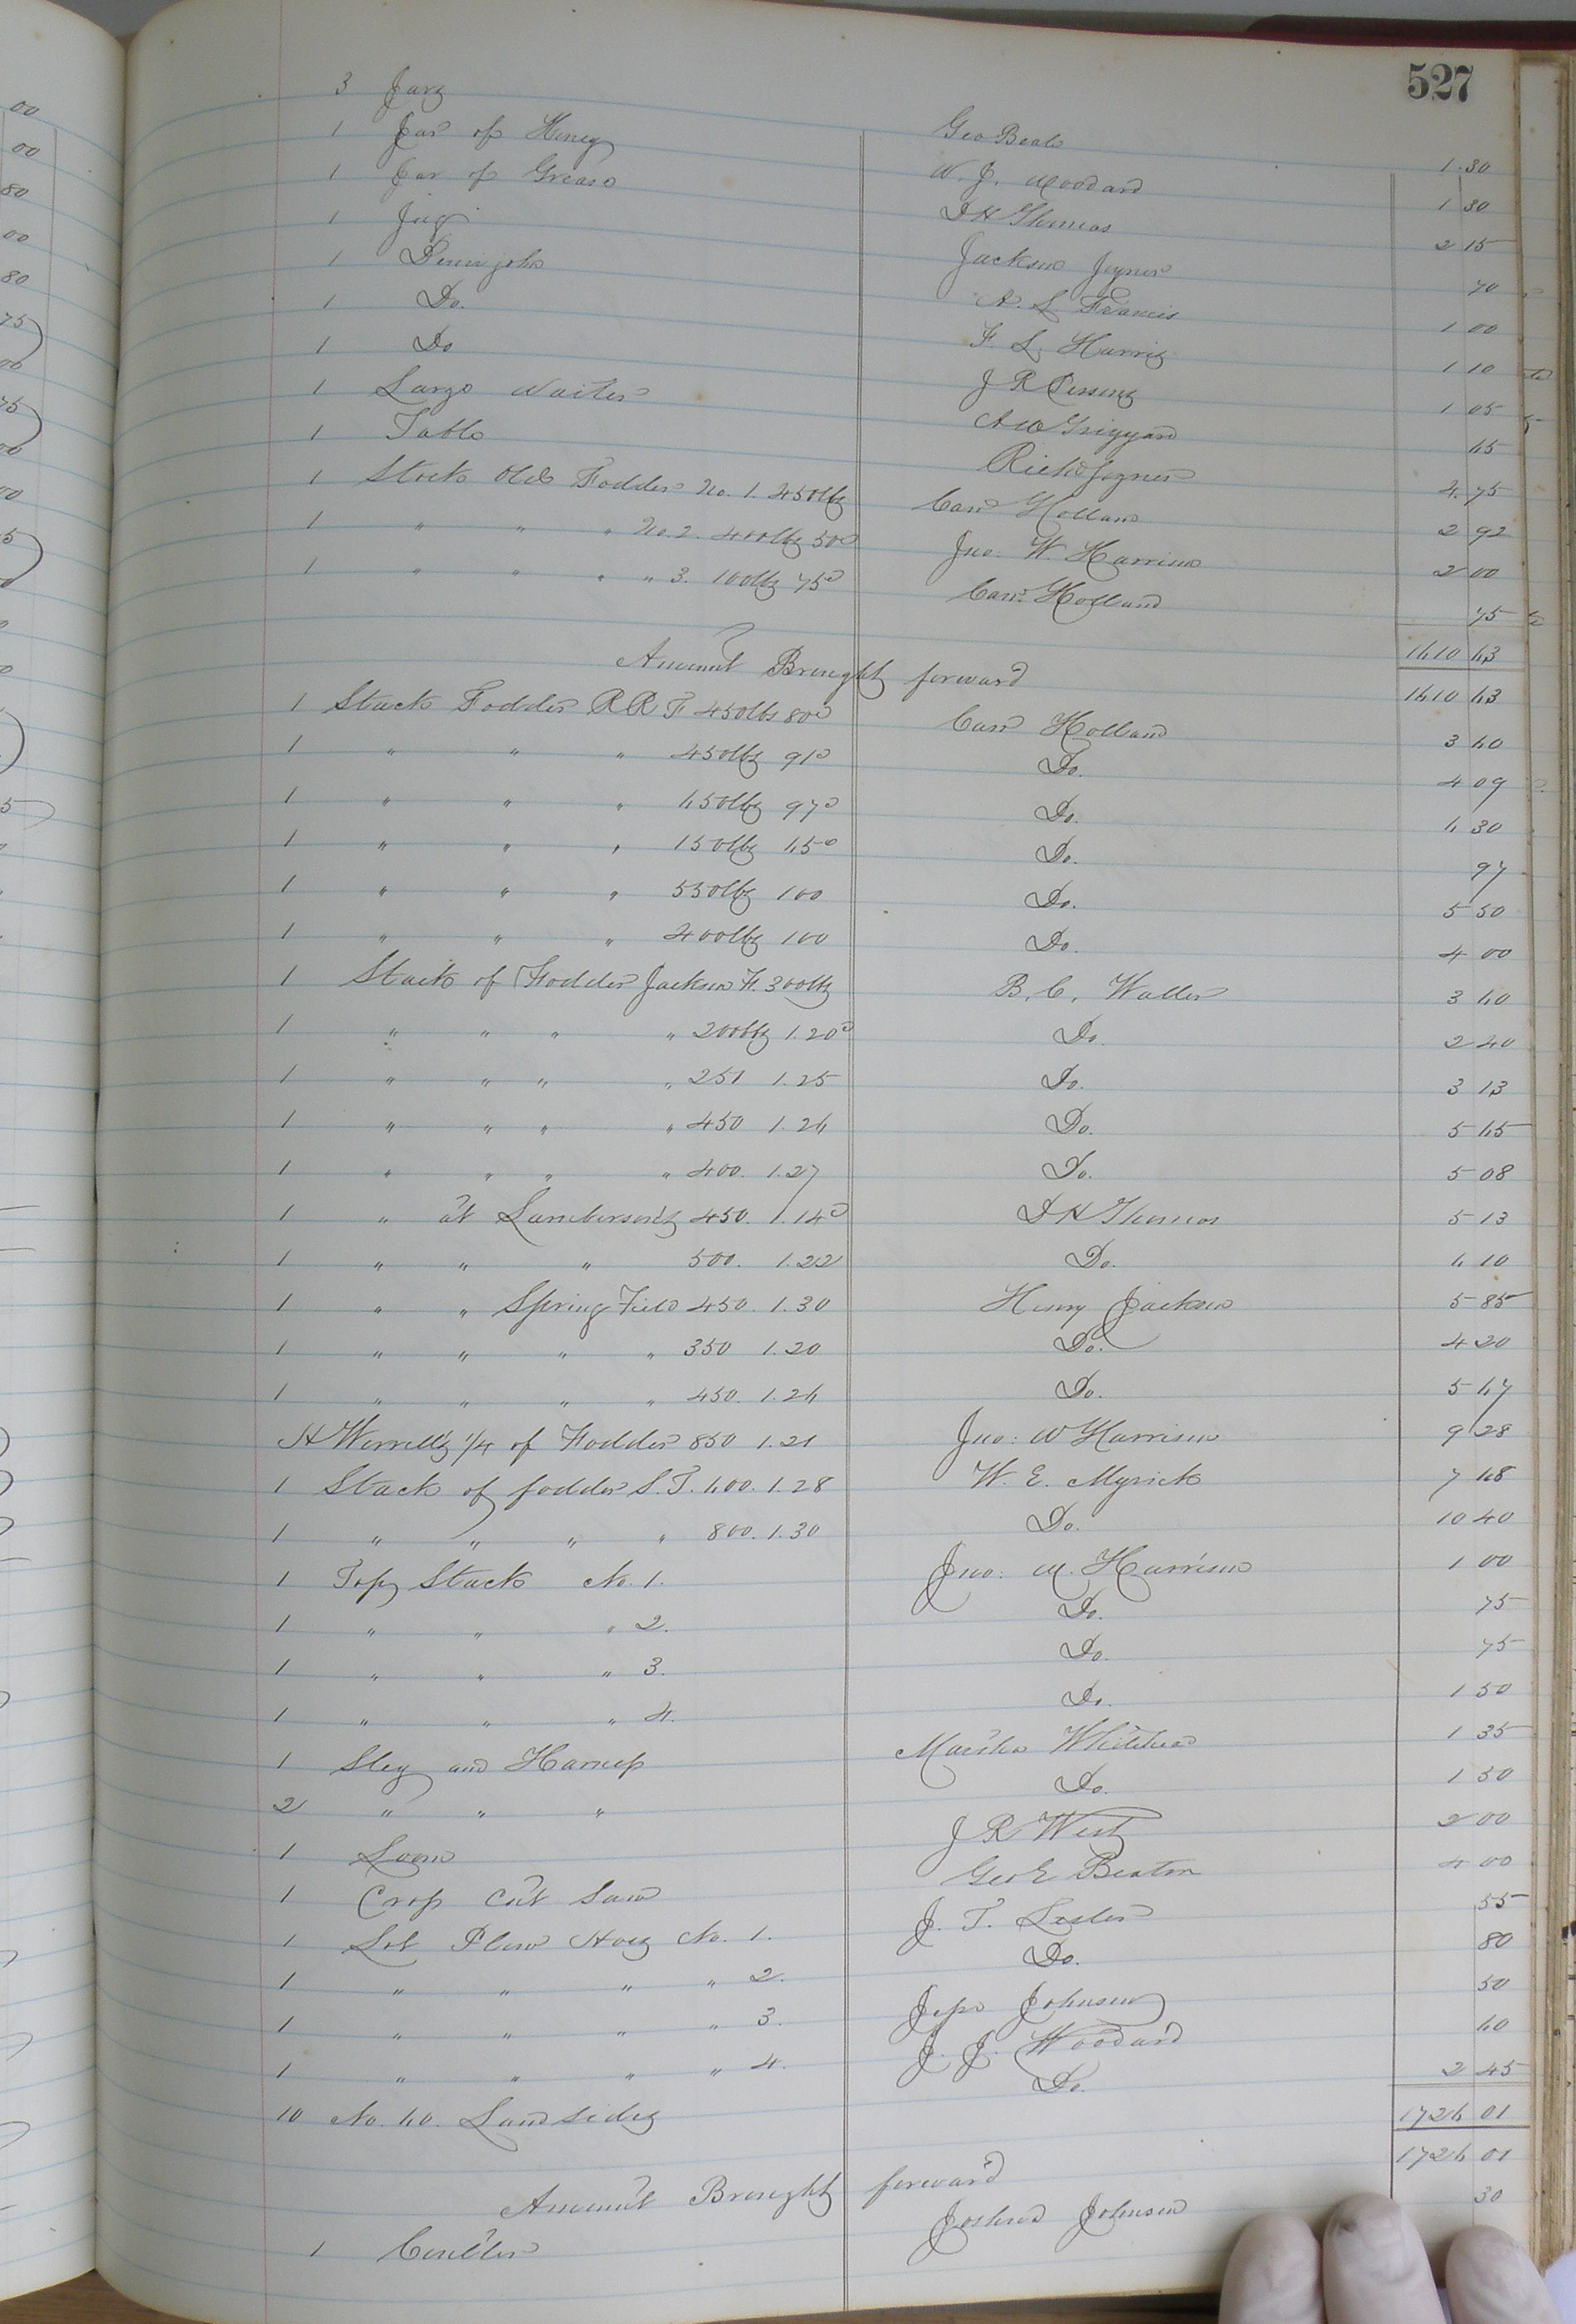 527
3 Jars Geo Beale 1.30
1 Jar of Honey W. J. Woodard 1 30
1 Jar of Grease D H Thomas 2 15
1 Jug Jackson Joyner 70
1 Demijohn A. L. Francis 1 00
1 Do. F. L. Harris 1 10
1 Do J R 1 05
1 Large Waiter A W Griggard 65
1 Table Richd Joyner 4.75
1 Stack Old Fodder No. 1. 450lbs Carr Holland 2 92
1 " " " No. 2. 400lbs 50c Jno. W. Harrison 2 00
1 " " " " 3. 100lbs 75c Carr Holland 75
1610 63
Amount Brought forward 1610 63
1 Stack Fodder R R F 450lbs 80c Carr Holland 3 60
1 " " " 450lbs 91c Do. 4 09
1 " " " 650lbs 97c Do. 6 30
1 " " " 150lbs 65c Do. 97
1 " " " 550lbs 100 Do. 5 50
1 " " " 400lbs 100 Do. 4 00
1 Stack of Fodder Jackson F. 300lbs B. C. Waller 3 60
1 " " " " 200lbs 1.20c Do. 2 40
1 " " " " 251 1.25 Do. 3 13
1 " " " " 450 1.26 Do. 5 65
1 " " " " 400. 1.27 Do. 5 08
1 " at Lamberson's 450. 1.14c D H Thomas 5 13
1 " " " 500. 1.22 Do. 6 10
1 " " Spring Field 450. 1.30 Henry Jackson 5 85
1 " " " " 350 1.20 Do. 4 20
1 " " " " 450. 1.26 Do. 5 67
H Worrell's 1/4 of Fodder 850 1.21 Jno: W Harrison 9 28
1 Stack of fodder S. F. 600. 1.28 W. E. Myrick 7 68
1 " " " " 800. 1.30 Do. 10 40
1 Top Stack No. 1. Jno: W. Harrison 1 00
1 " " " 2. Do. 75
1 " " " 3. Do. 75
1 " " " 4. Do. 1 50
1 Sley and Harness Martha Whitehead 1 35
2 " " " Do. 1 50
1 Loom J R West 2 00
1 Crop Cut Saw Geo E Beaton 4 00
1 Lot Plow Hoes No. 1. J. T. Lester 55
1 " " " " 2. Do. 80
1 " " " " 3. Jesse Johnson 50
1 " " " " 4. J. J. Woodard 60
10 No. 60. Land sides Do. 2 45
1726 01
Amount Brought forward 1726 01
1 Coulter Joshua Johnson 30